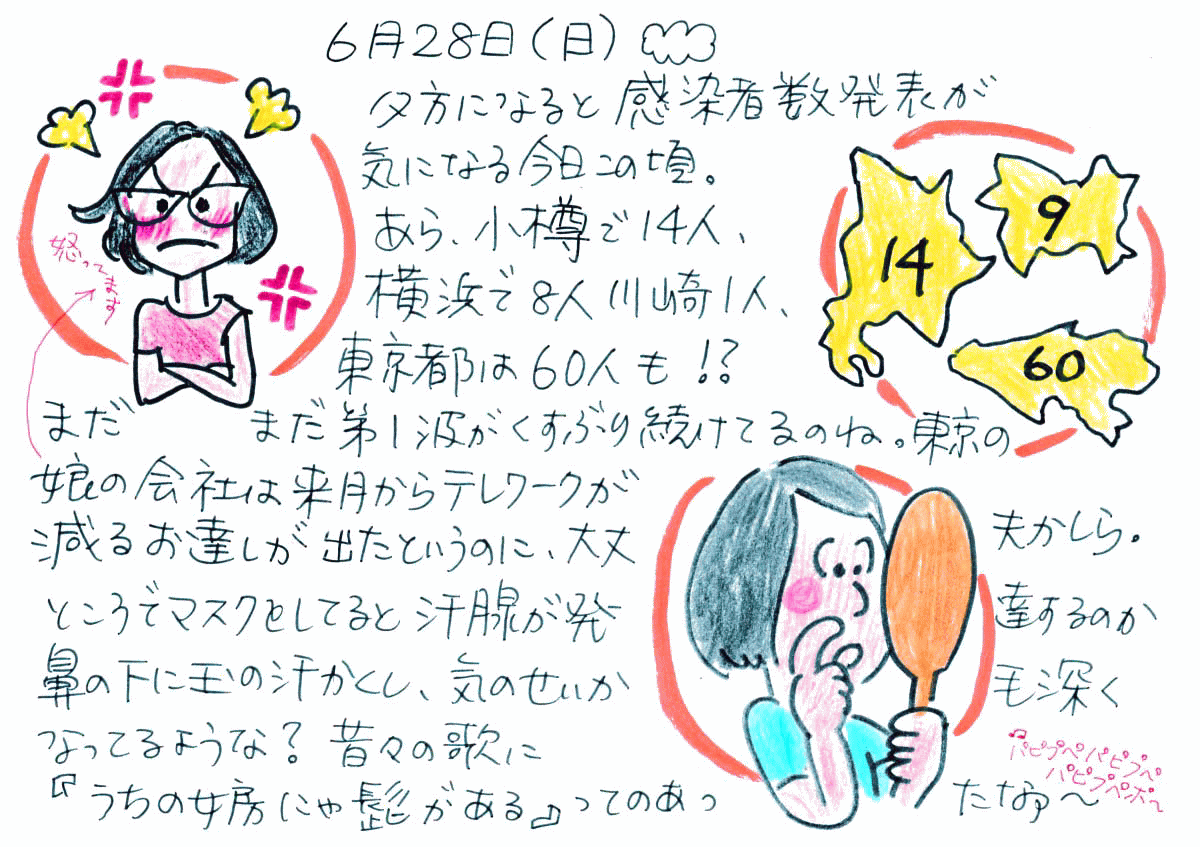 6月28日(日)
夕方になると感染者数発表が
気になる今日この頃。
あら、小樽で14人、
横浜で8人川崎1人、
東京都は60人も!?
まだまだ第1波がくすぶり続けてるのね。東京の
娘の会社は来月からテレワークが
減るお達しが出たというのに、大丈夫かしら。
ところでマスクをしてると汗腺が発達するのか
鼻の下に玉の汗かくし、気のせいか毛深く
なってるような?昔々の歌に
『うちの女房にゃ髭がある』ってのあったなァ〜
怒ってます
14
9
60
♫パピプペパピプペ
パピプペポ〜